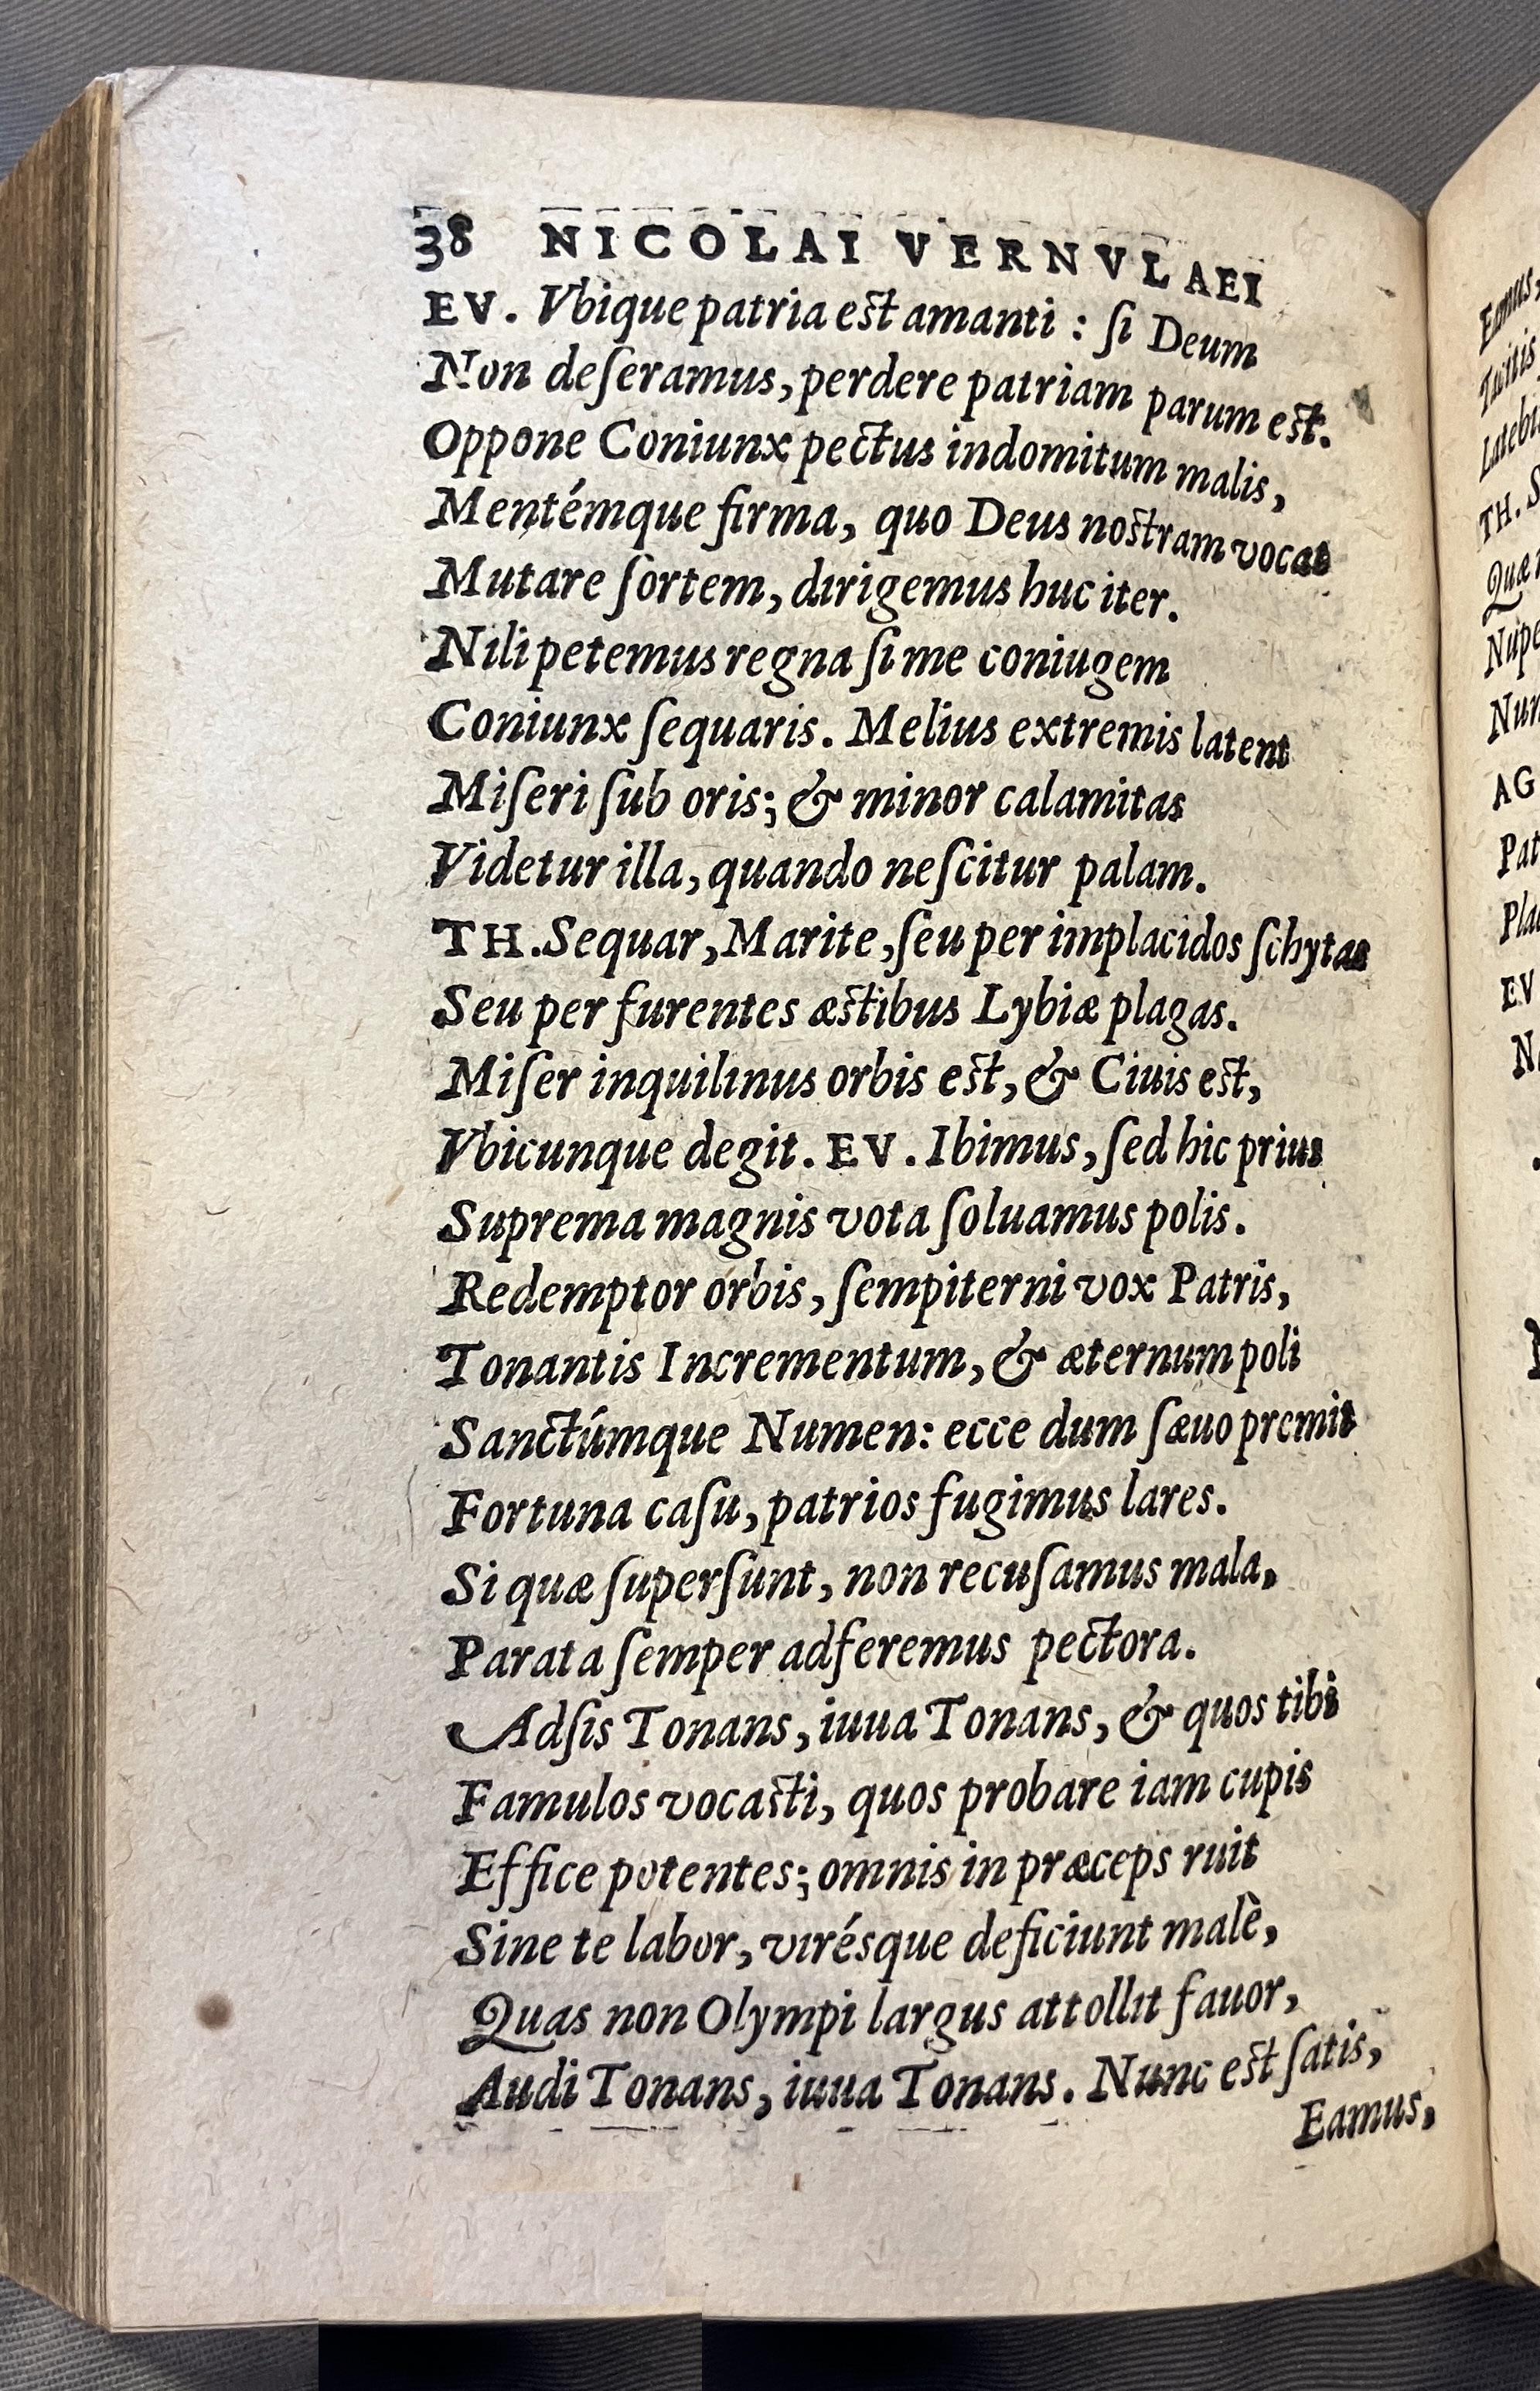 38 NICOLAI VERNVLAEI
EV. Vbique patria est amanti : ſi Deum
Non deſeramus, perdere patriam parum est.
Oppone Coniunx pectus indomitum malis,
Mentémque firma, quo Deus nostram vocat
Mutare ſortem, dirigemus huc iter.
Nili petemus regna ſi me coniugem
Coniunx ſequaris. Melius extremis latent
Miſeri ſub oris; & minor calamitas
Videtur illa, quando neſcitur palam.
TH. Sequar, Marite, ſeu per implacidos ſchytas
Seu per furentes æstibus Lybiæ plagas.
Miſer inquilinus orbis est, & Ciuis est,
Vbicunque degit. EV. Ibimus, ſed hic prius
Suprema magnis vota ſoluamus polis.
Redemptor orbis, ſempiterni vox Patris,
Tonantis Incrementum, & æternum poli
Sanctúmque Numen: ecce dum ſæuo premit
Fortuna caſu, patrios fugimus lares.
Si quæ ſuperſunt, non recuſamus mala,
Parata ſemper adferemus pectora.
Adſis Tonans, iuua Tonans, & quos tibi
Famulos vocasti, quos probare iam cupis
Effice potentes; omnis in præceps ruit
Sine te labor, virésque deficiunt malè,
Quas non Olympi largus attollit fauor,
Audi Tonans, iuua Tonans. Nunc est ſatis,
Eamus,
Eamus,
TH. S
AG
EV